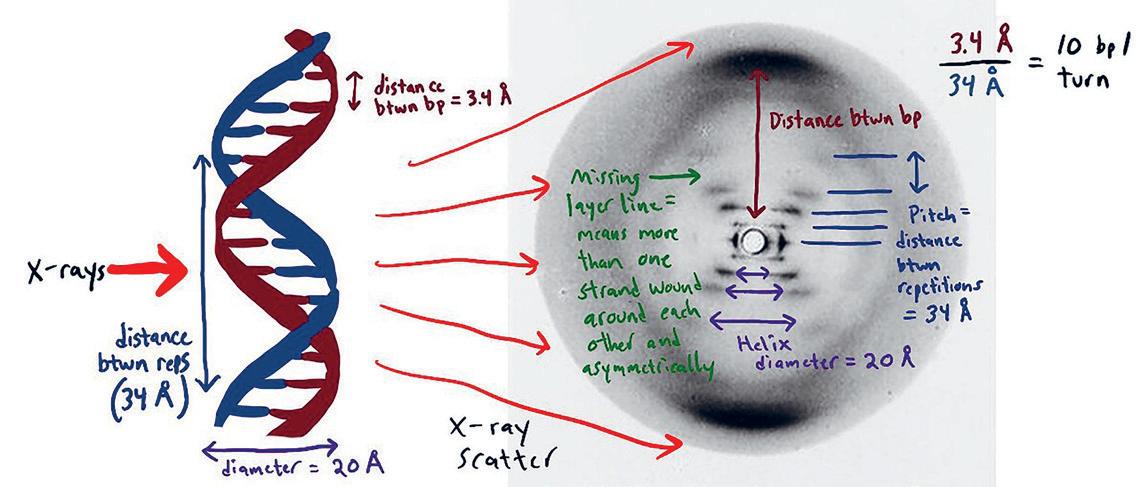 distance
btwn bp = 3.4 Å
X-rays
distance
btwn reps
(34 Å)
diameter = 20 Å
X-ray
scatter
Missing
layer line =
means more
than one
strand wound
around each
other and
asymmetrically
Distance btwn bp
Pitch =
distance
btwn
repetitions
= 34 Å
Helix
diameter = 20 Å
3.4 Å
34 Å
= 10 bp/
turn